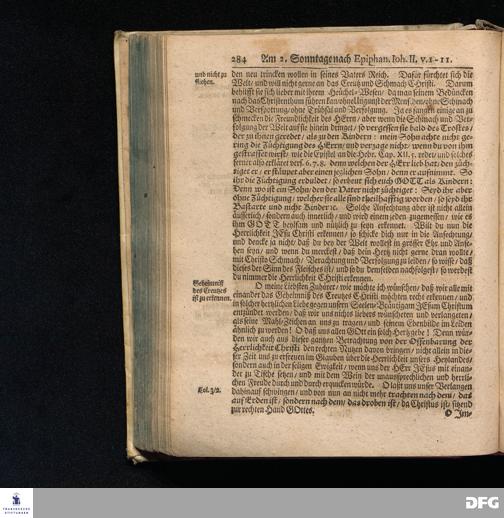 284 Am 2. Sonntage nach Epiphan. Ioh. II, v. 1-11.
und nicht zu fliehen.
den neu trincken wollen in seines Vaters Reich. Dafür fürchtet sich die
Welt / und will nicht gerne an das Creutz und Schmach Christi. Darum
behilfft sie sich lieber mit ihrem Heuchel-Wesen / da man seinem Bedüncken
nach das Christenthum führen kan ohne Ungunst der Menschen / ohne Schmach
und Verspottung / ohne Trübsal und Verfolgung. Ja es fangen einige an zu
schmecken die Freundlichkeit des HErrn / aber wenn die Schmach und Ver-
folgung der Welt auf sie hinein dringet / so vergessen sie bald des Trostes /
der zu ihnen geredet / als zu den Kindern: mein Sohn achte nicht ge-
ring die Züchtigung des HErrn / und verzage nicht / wenn du von ihm
gestraffet wirst / wie die Epistel an die Hebr. Cap. XII, 5. redet / und solches
ferner also erkläret vers. 6. 7. 8. denn welchen der HErr lieb hat / den züch-
tiget er / er stäupet aber einen jeglichen Sohn / den er aufnimmt. So
ihr die Züchtigung erduldet / so erbeut sich euch GOTT als Kindern:
Denn wo ist ein Sohn / den der Vater nicht züchtiget: Seyd ihr aber
ohne Züchtigung / welcher sie alle sind theilhafftig worden / so seyd ihr
Bastarte und nicht Kinder ꝛc. Solche Anfechtung aber ist nicht allein
äusserlich / sondern auch innerlich / und wird einem jeden zugemessen / wie es
ihm GOTT heylsam und nützlich zu seyn erkennet. Wilt du nun die
Herrlichkeit JEsu Christi erkennen / so schicke dich nur in die Anfechtung /
und dencke ja nicht / daß du bey der Welt wollest in grosser Ehr und Anse-
hen seyn / und wenn du merckest / daß dein Hertz nicht gerne dran wollte /
mit Christo Schmach / Verachtung und Verfolgung zu leiden / so wisse / daß
dieses der Sinn des Fleisches ist / und so du demselben nachfolgest / so werdest
du nimmer die Herrlichkeit Christi erkennen.
Geheimniß
des Creutzes
ist zu erkennen.
O meine liebsten Zuhörer / wie möchte ich wünschen / daß wir alle mit
einander das Geheimniß des Creutzes Christi möchten recht erkennen / und
in solcher hertzlichen Liebe gegen unsern Seelen-Bräutigam JEsum Christum
entzündet werden / daß wir uns nichts liebers wünscheten und verlangeten /
als seine Mahl-Zeichen an uns zu tragen / und seinem Ebenbilde im Leiden
ähnlich zu werden! O daß uns allen GOtt ein solch Hertz gebe! Denn wür-
den wir auch aus dieser gantzen Betrachtung von der Offenbarung der
Herrlichkeit Christi den rechten Nutzen davon bringen / nicht allein in die-
ser Zeit uns zu erfreuen im Glauben über die Herrlichkeit unsers Heylandes /
sondern auch in der seligen Ewigkeit / wenn uns der HErr JEsus mit einan-
der zu Tische setzen / und mit dem Wein der unaussprechlichen und herrli-
chen Freude durch und durch erquicken würde. O laßt uns unser Verlangen
Col. 3/2.
dahinauf schwingen / und von nun an nicht mehr trachten nach dem / das
auf Erden ist / sondern nach dem / das droben ist / da Christus ist / sitzend
zur rechten Hand GOttes.
O Im-
FRANCKESCHE
STIFTUNGEN
DFG